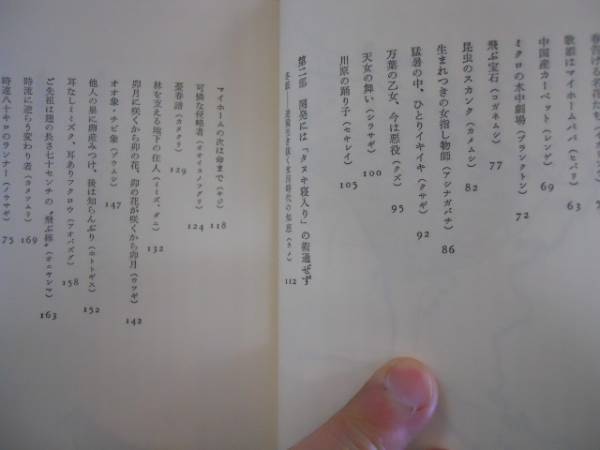 歌姫はマイホームパパ（ヒバリ） 63
中国産カーペット（レンゲ） 69
ミクロの水中劇場（プランクトン） 72
飛ぶ宝石（コガネムシ） 77
昆虫のスカンク（カメムシ） 82
生まれつきの女指し物師（アシナガバチ） 86
猛暑の中、ひとりイキイキ（クサギ） 92
万葉の乙女、今は悪役（クズ） 95
天女の舞い（シラサギ） 100
川原の踊り子（セキレイ） 105
第二部 開発には「タヌキ寝入り」の術通ぜず
マイホームの次は命まで（キジ） 118
可憐な侵略者（オオイヌノフグリ） 124
憂春譜（カタクリ） 129
林を支える地下の住人（ミミズ・ダニ） 132
卯月に咲くから卯の花、卯の花が咲くから卯月（ウツギ） 142
オオ象・チビ象（ゾウムシ） 147
他人の巣に卵産みつけ、後は知らんぷり（ホトトギス） 152
耳なしミミズク、耳ありフクロウ（アオバズク） 158
ご先祖は翅の長さ七十センチの“飛ぶ棒”（オニヤンマ） 163
時流に逆らう変わり者（カタツムリ） 169
時速八十キロのランナー（ノウサギ） 75